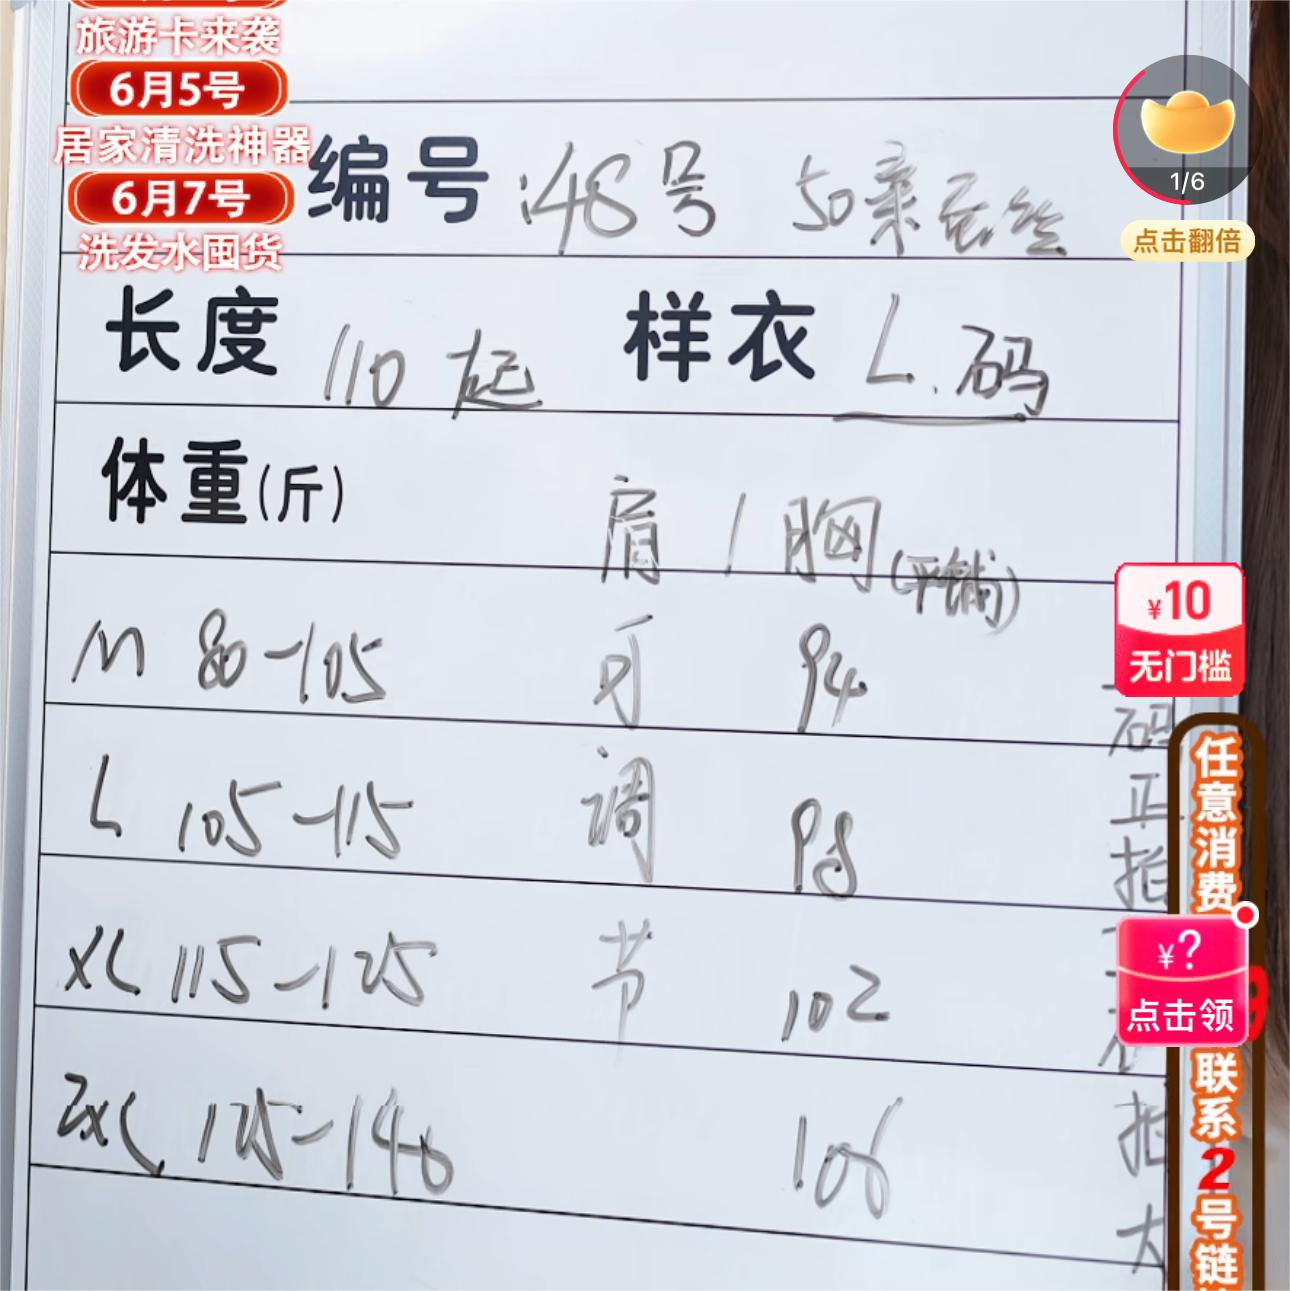 旅游卡来袭
6月5号
居家清洗神器
6月7号
洗发水囤货
1/6
点击翻倍
编号:148号 50桑蚕丝
长度 110起 样衣 L.码
体重(斤) 肩/胸(平铺)
M 80-105 可 94
L 105-115 调 98
XL 115-125 节 102
2XL 125-140 106
码
正
拍
拍
大
¥10
无门槛
任意消费
¥?
点击领
联系2号链